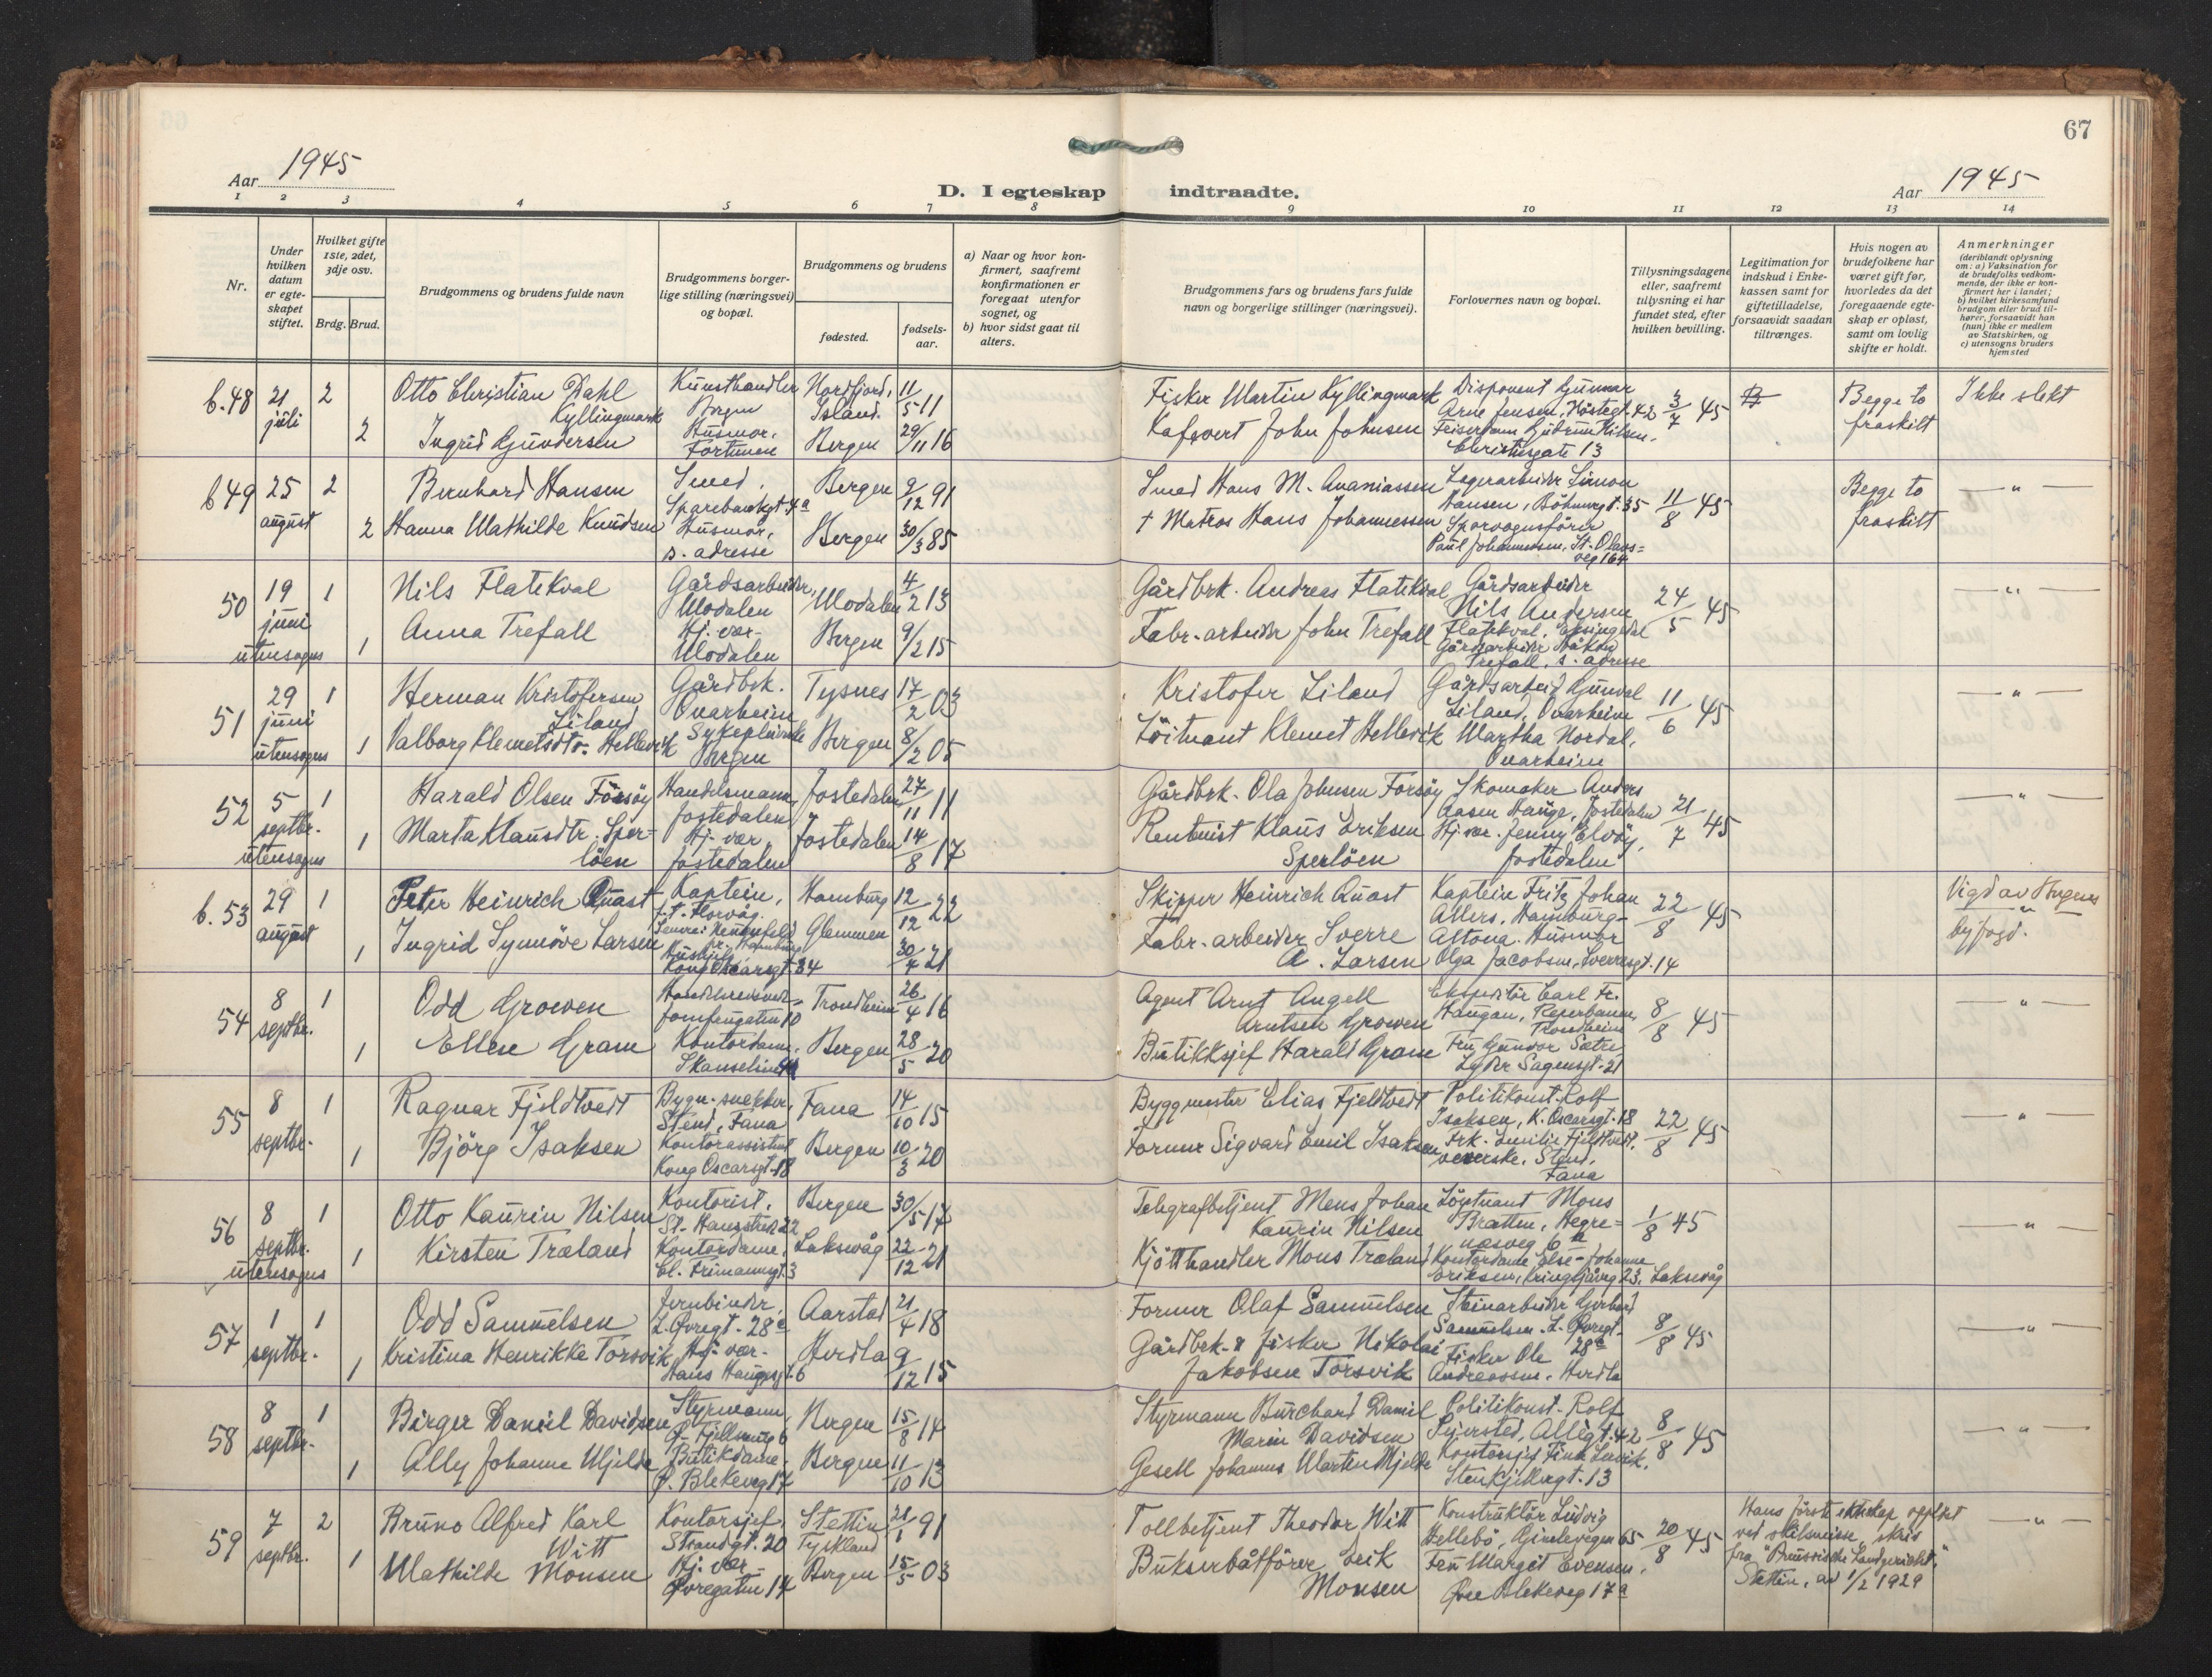 67
Aar 1945
D. I egteskap indtraadte.
Aar 1945
1 2 3 4 5 6 7 8 9 10 11 12 13 14
Nr.
Under hvilken datum er egteskapet stiftet.
Hvilket gifte 1ste, 2det, 3dje osv.
Brdg. Brud.
Brudgommens og brudens fulde navn
Brudgommens borgerlige stilling (næringsvei) og bopæl.
Brudgommens og brudens
fødested.
fødselsaar.
a) Naar og hvor konfirmert, saafremt konfirmationen er foregaat utenfor sognet, og
b) hvor sidst gaat til alters.
Brudgommens fars og brudens fars fulde navn og borgerlige stillinger (næringsvei).
Forlovernes navn og bopæl.
Tillysningsdagene eller, saafremt tillysning ei har fundet sted, efter hvilken bevilling.
Legitimation for indskud i Enkekassen samt for giftetilladelse, forsaavidt saadan tiltrænges.
Hvis nogen av brudefolkene har været gift før, hvorledes da det foregaaende egteskap er opløst, samt om lovlig skifte er holdt.
Anmerkninger (deriblandt oplysning om: a) Vaksination for de brudefolks vedkommende, der ikke er konfirmert her i landet; b) hvilket kirkesamfund brudgom eller brud tilhører, forsaavidt han (hun) ikke er medlem av Statskirken, og c) utensogns bruders hjemsted
b. 48 21 juli 2 Otto Christian Dahl Kyllingmark Kunsthandler Bergen Nordfjord, Island. 11/5 11 Fisker Martin Kyllingmark Disponent Gunnar Arne Jensen, Høstegt. 42 3/7 45 Begge to fraskilt Ikke slekt
2 Ingrid Gundersen Husmor, Fortunen Bergen 29/11 16 John Johnsen Gudrun Nilsen, Christiesgate 13
b 49 25 august 2 Bernhard Hansen Smed, Sparebankgt. 4a Bergen 9/12 91 Smed Hans M. Ananiassen Lagerarbeider Simon Hansen, 35 11/8 45 Begge to fraskilt — " —
2 Hanna Mathilde Knudsen Husmor, s. adresse Bergen 30/3 85 † Matros Hans Johannessen Sporvognsfører Paul Johannessen, St. Olavsveg 16a
50 19 juni utensogns 1 Nils Flatekval Gårdsarbeider, Modalen Modalen 4/2 13 Gårdbrk. Andreas Flatekval Gårdsarbeider Nils Andersen Flatekval, Eksingedal 24/5 45 — " —
1 Anna Trefall Hj. vær. Modalen Bergen 9/2 15 Fabr. arbeider John Trefall Gårdsarbeider Håkon Trefall, s. adresse
51 29 juni utensogns 1 Herman Kristofersen Liland Gårdbrk. Onarheim Tysnes 17/2 03 Kristofer Liland Gårdsarbeid. Gunvald Liland, Onarheim 11/6 45 — " —
1 Valborg Klemetsdtr. Hellevik Sykepleierske Bergen Bergen 8/2 05 Löitnant Klemet Hellevik Martha Nordal, Onarheim
52 5 septbr. utensogns 1 Harald Olsen Försöy Handelsmann, Jostedalen Jostedalen 27/11 11 Gårdbrk. Ola Johnsen Forsöy Skomaker Anders Aasen Hauge, Jostedalen 21/7 45 — " —
1 Marta Klausdtr. Sperlöen Hj. vær. Jostedalen Jostedalen 14/8 17 Rentenist Klaus Eriksen Sperlöen Hj. vær. Jenny Elvöy, Jostedalen
b. 53 29 august 1 Peter Heinrich Quast Kaptein, f. t. Florvåg. Hamburg 12/12 22 Skipper Heinrich Quast Kaptein Fritz Johan Allers, Hamburg-Altona. 22/8 45 Vigd av Bergens byfogd.
1 Ingrid Synnöve Larsen Kong Oscarsgt. 34 Glemmen 30/4 21 Fabr. arbeider Sverre A. Larsen Husmor Olga Jacobsen, Sverresgt. 14
54 8 septbr. 1 Odd Growen Jomfrugaten 10 Trondheim 26/4 16 Agent Arnt Angell Arntsen Growen Ekspeditör Carl Fr. Haugan, Reperbanen, Trondheim 8/8 45 — " —
1 Ellen Gram Kontordame, Skanselien Bergen 28/5 20 Butikksjef Harald Gram Fru Gunvor Sætre, Lyder Sagensgt. 21
55 8 septbr. 1 Ragnar Fjeldtvedt Bygn. snekker, Stend, Fana Fana 14/10 15 Byggmester Elias Fjeldtvedt Politikonst. Rolf Isaksen, K. Oscarsgt. 18 22/8 45 — " —
1 Björg Isaksen Kontorassistent Kong Oscarsgt. 18 Bergen 10/3 20 Former Sigvard Emil Isaksen Frk. Emilie Fjeldtvedt, veverske, Stend, Fana
56 8 septbr. utensogns 1 Otto Kaurin Nilsen Kontorist, St. Hansstredet 22 Bergen 30/5 17 Telegrafbetjent Mens Johan Kaurin Nilsen Löytnant Mons Bratten, Hegrenæsveg 6 1/8 45 — " —
1 Kirsten Træland Kontordame, Cl. Frimannsgt. 3 Laksevåg 22/12 21 Kjötthandler Mons Træland Kontordame Else-Johanne Eriksen, Kringsjåveg 23, Laksevåg
57 1 septbr. 1 Odd Samuelsen Jernbinder, L. Øvregt. 28c Aarstad 21/4 18 Former Olaf Samuelsen Steinarbeider Gerhard Samuelsen, L. Øvregt. 28c 8/8 45 — " —
1 Kristina Henrikke Torsvik Hj. vær. Hans Haugesgt. 6 Herdla 9/12 15 Gårdbrk. & fisker Nikolai Jakobsen Torsvik Fisker Ole Andreassen, Herdla
58 8 septbr. 1 Birger Daniel Davidsen Styrmann Bergen 15/8 14 Styrmann Burchard Daniel Marin Davidsen Politikonst. Rolf Sjersted, Allégt. 42 8/8 45 — " —
1 Ally Johanne Mjelde Butikdame, Ø. Blekeveg 17 Bergen 11/10 13 Gesell Johannes Martin Mjelde Kontorsjef Finn Lervik, Stenkjellergt. 13
59 7 septbr. 2 Bruno Alfred Karl Witt Kontorsjef, Strandgt. 20 Stettin Tyskland 21/1 91 Tollbetjent Theodor Witt Konstruktör Ludvig Hellebö, Gimlevegen 65 20/8 45 Hans første ekteskap opplöst ved skilsmisse, skris fra "Preussische Landgericht", Stettin, av 1/2 1929 — " —
1 Mathilde Monsen Hj. vær. Øvregaten 17 Bergen 15/5 03 Bukserbåtförer Eeik Monsen Fru Margit Evensen, Øvre Blekeveg 17a